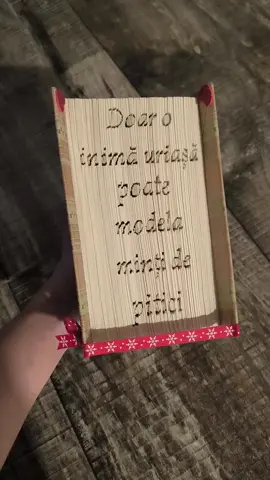 Doar o
inimă uriașă
poate
modela
minți de
pitici